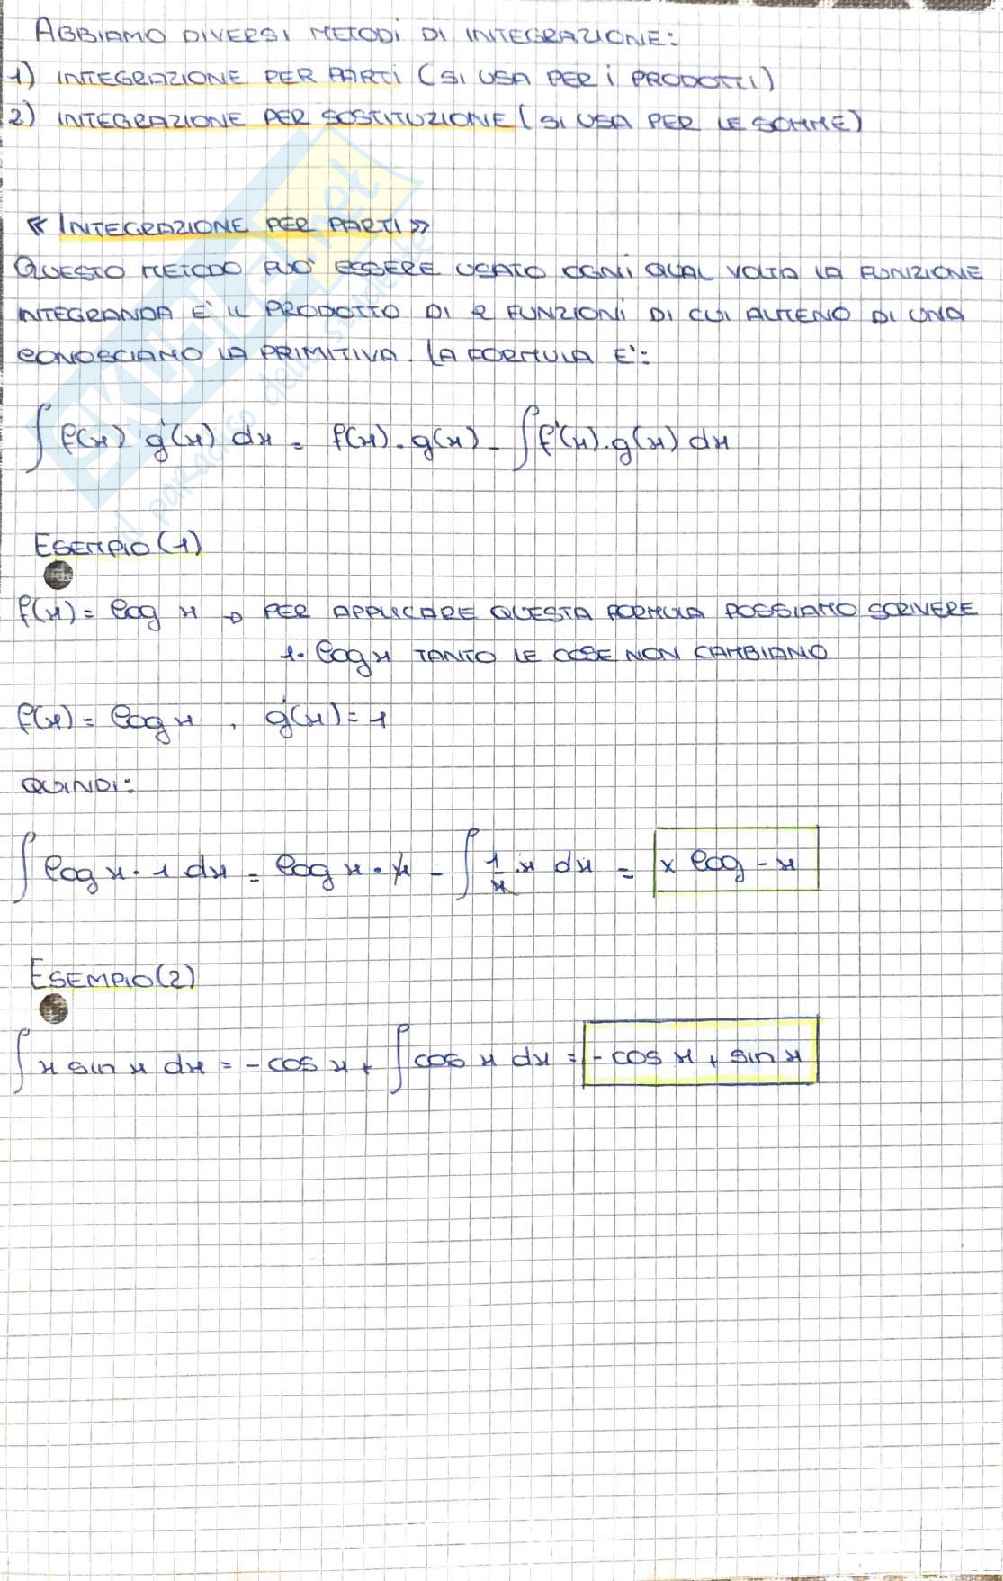 ABBIAMO DIVERSI METODI DI INTEGRAZIONE:
1) INTEGRAZIONE PER PARTI (SI USA PER I PRODOTTI)
2) INTEGRAZIONE PER SOSTITUZIONE (SI USA PER LE SOMME)
« INTEGRAZIONE PER PARTI »
QUESTO METODO PUO' ESSERE USATO OGNI QUAL VOLTA LA FUNZIONE
INTEGRANDA E' IL PRODOTTO DI 2 FUNZIONI DI CUI ALMENO DI UNA
CONOSCIAMO LA PRIMITIVA. LA FORMULA E':
∫ f(x) g'(x) dx = f(x) . g(x) - ∫ f'(x) . g(x) dx
ESEMPIO (1)
f(x) = log x → PER APPLICARE QUESTA FORMULA POSSIAMO SCRIVERE
1 . log x TANTO LE COSE NON CAMBIANO
f(x) = log x , g'(x) = 1
QUINDI:
∫ log x . 1 dx = log x . x - ∫ 1/x . x dx = x log - x
ESEMPIO (2)
∫ x sin x dx = - cos x + ∫ cos x dx = - cos x + sin x